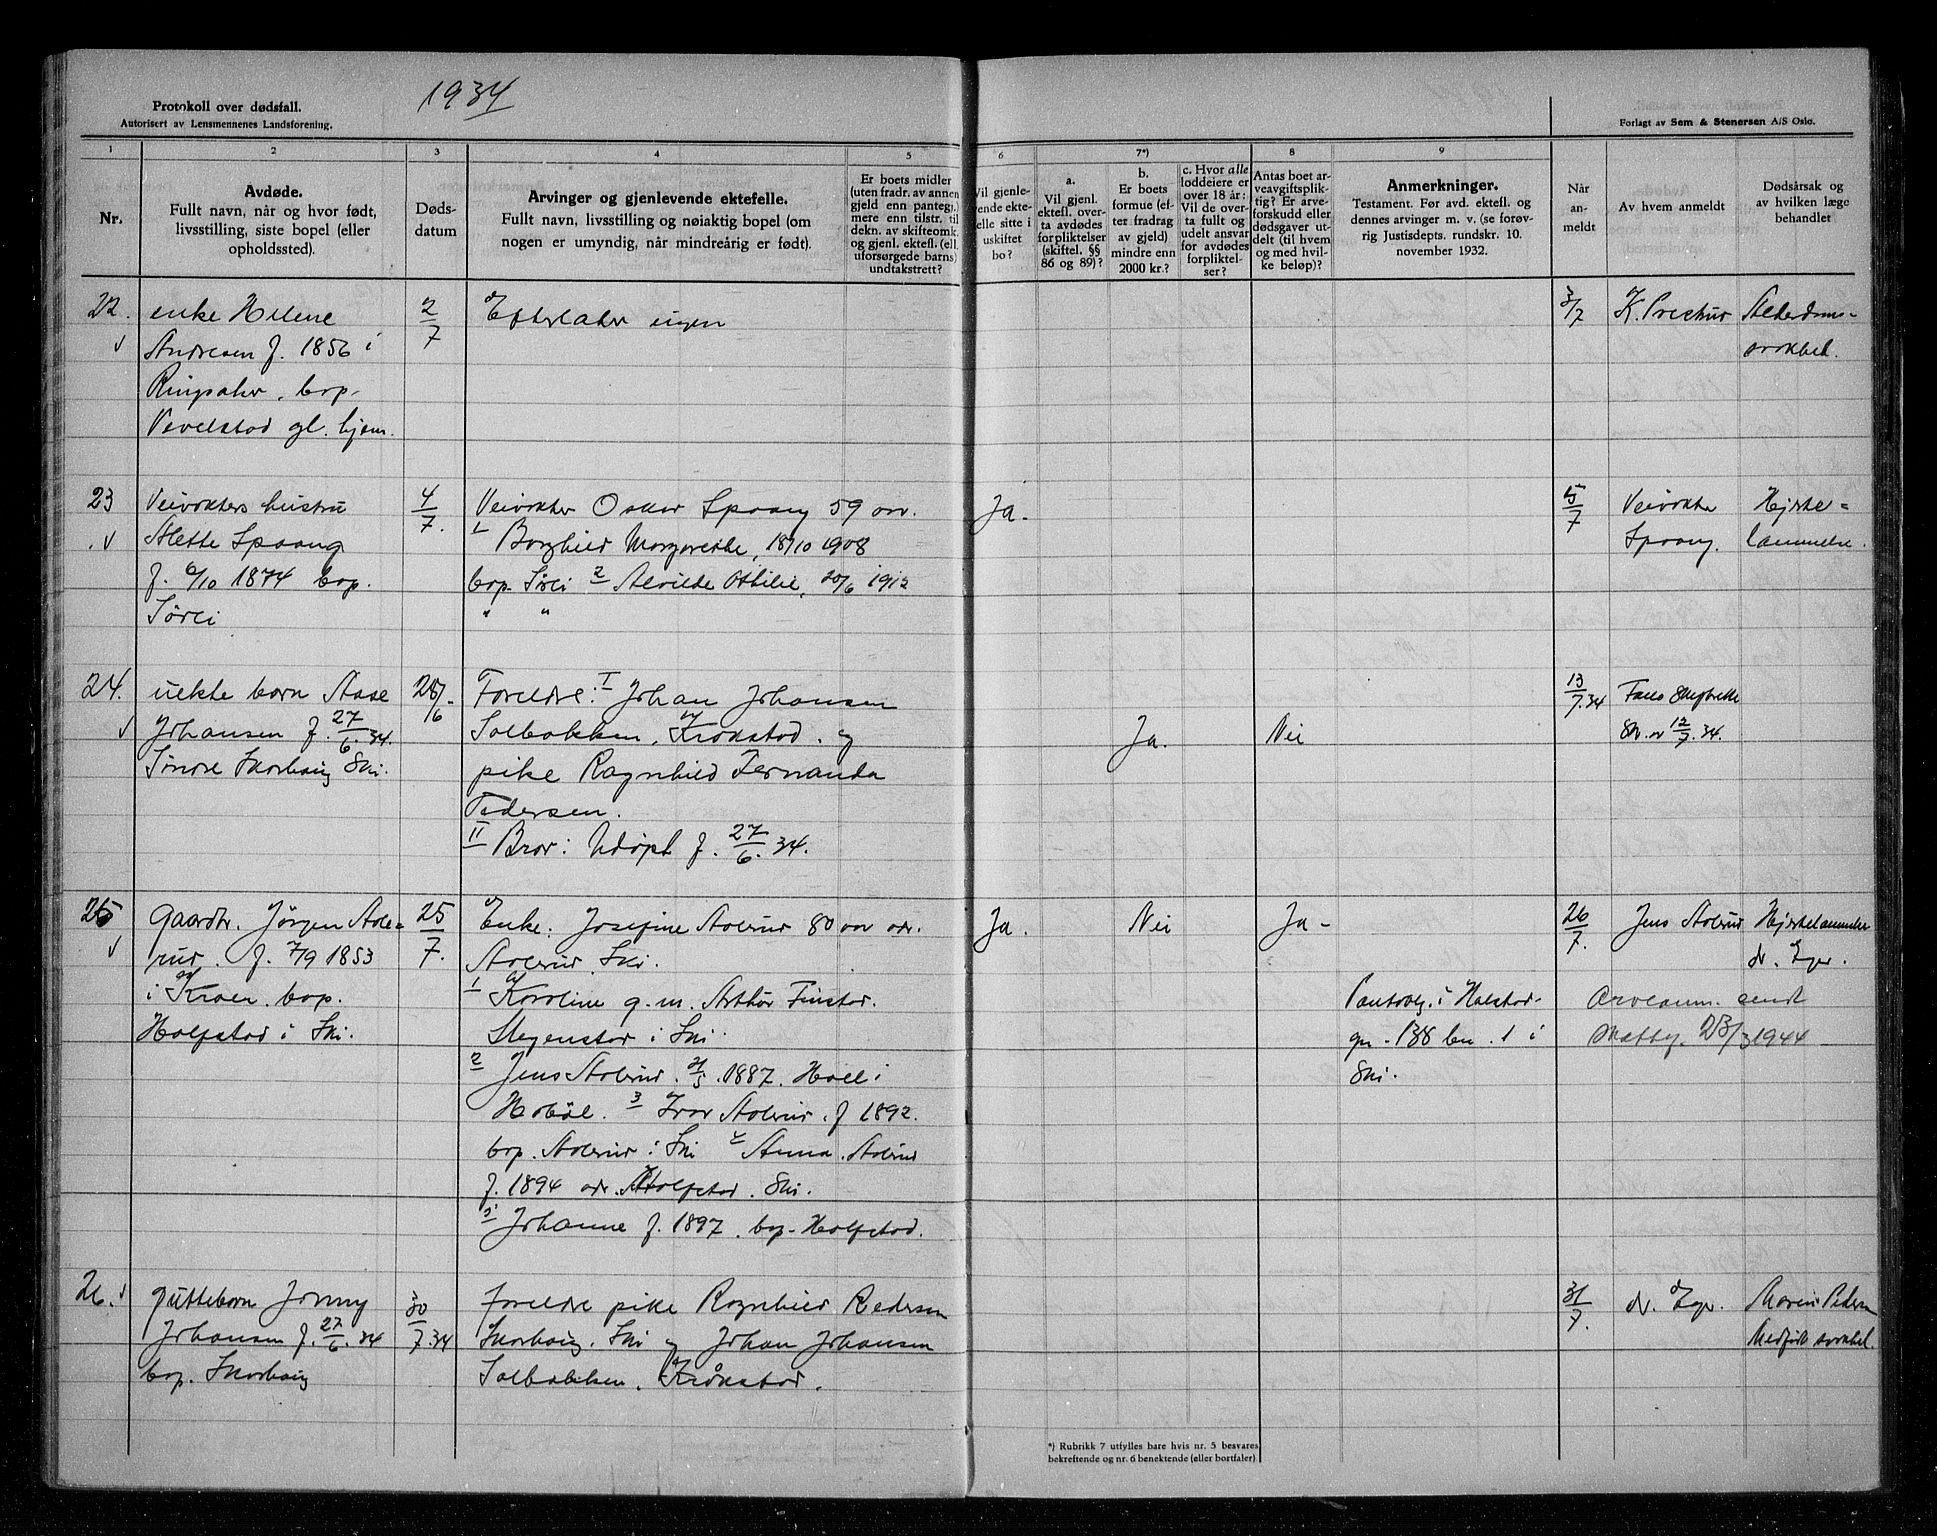 1934
Protokoll over dødsfall.
Autorisert av Lensmennenes Landsforening.
Forlagt av Sem & Stenersen A/S Oslo.
1 2 3 4 5 6 7*) 8 9
Nr.
Avdøde.
Fullt navn, når og hvor født,
livsstilling, siste bopel (eller
opholdssted).
Døds-
datum
Arvinger og gjenlevende ektefelle.
Fullt navn, livsstilling og nøiaktig bopel (om
nogen er umyndig, når mindreårig er født).
Er boets midler
(uten fradr. av annen
gjeld enn pantegj.)
mere enn tilstr. til
dekn. av skifteomk.
og gjenl. ektefl. (ell.
uforsørgede barns)
undtakstrett?
Vil gjenle-
vende ekte-
elle sitte i
uskiftet
bo?
a.
Vil gjenl.
ektefl. over-
ta avdødes
forpliktelser
(skiftel. §§
86 og 89)?
b.
Er boets
formue (ef-
ter fradrag
av gjeld)
mindre enn
2000 kr.?
c. Hvor alle
loddeiere er
over 18 år:
Vil de over-
ta fullt og
udelt ansvar
for avdødes
forpliktel-
ser?
Antas boet ar-
veavgiftsplik-
tig? Er arve-
forskudd eller
dødsgaver ut-
delt (til hvem
og med hvil-
ke beløp)?
Anmerkninger.
Testament. Før avd. ektefl. og
dennes arvinger m. v. (se forøv-
rig Justisdepts. rundskr. 10.
november 1932.
Når
an-
meldt
Av hvem anmeldt
Dødsårsak og
av hvilken læge
behandlet
22. enke Helene 2/7 Efterlater ingen 3/7 Alderdoms-
Andresen f. 1856 i svakhet.
Ringsaker. bop.
Vevelstad gl. hjem.
23 Veivokters hustru 4/7. Veivokter Oskar Spaang 59 aar. Ja. 5/7 Veivokter Hjerte=
Alette Spaang 1 Borghild Margrethe, 18/10 1908 Spaang. lammelse.
f. 6/10 1874 bop. bop. 2 Alvilde Ottilie, 20/6 1912
" "
24. uekte barn Aase Foreldre: I Johan Johansen 13/7.34
Johansen f. 27/6.34. Solbakken, Kråkstad. og Ja. Nei 12/7.34.
Søndre Skorhaug Ski. pike Ragnhild Fernanda
Pedersen.
II Bror: Udøpt f. 27/6.34.
25 Gaardbr. Jørgen Aale= 25/7. Enke: Josefine Aalerud 80 aar adr. Ja. Nei Ja- 26/7. Jens Aalerud Hjertelammelse
rud. f. 7/9 1853 Aalerud, Ski. dr. Eger.
i Kroer. bop. 1 Karoline g.m. Arthur Finstad. Pantobl. i
i Ski. i Ski. gn. 138 bn. 1 i 1944
2 Jens Aalerud. 1887. Hoel i Ski.
Hobøl. 3 Ivar Aalerud. f 1892.
bop. Aalerud i Ski 4 Anna Aalerud
f. 1894 adr. Ski.
5 Johanne f. 1897. bop.
26. guttebarn Jonny 30/7.34 foreldre pike Ragnhild Pedersen 31/7. dr. Eger.
Johansen f. 27/6.34 Skorhaug. Ski og Johan Johansen Medfødt svakhet.
bop. Skorhaug Solbakken, Kråkstad.
*) Rubrikk 7 utfylles bare hvis nr. 5 besvares
bekreftende og nr. 6 benektende (eller bortfaler).